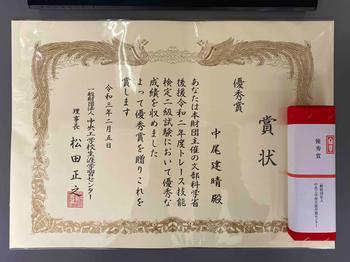 賞状
優秀賞
中尾建晴殿
あなたは本財団主催の文部科学省
後援令和二年度トレース技能
検定二級試験において優秀な
成績を収めました
よって優秀賞を贈りこれを
賞します
令和三年二月五日
一般財団法人中央工学校生涯学習センター
理事長 松田正之
優秀賞
一般財団法人
中央工学校生涯学習センター